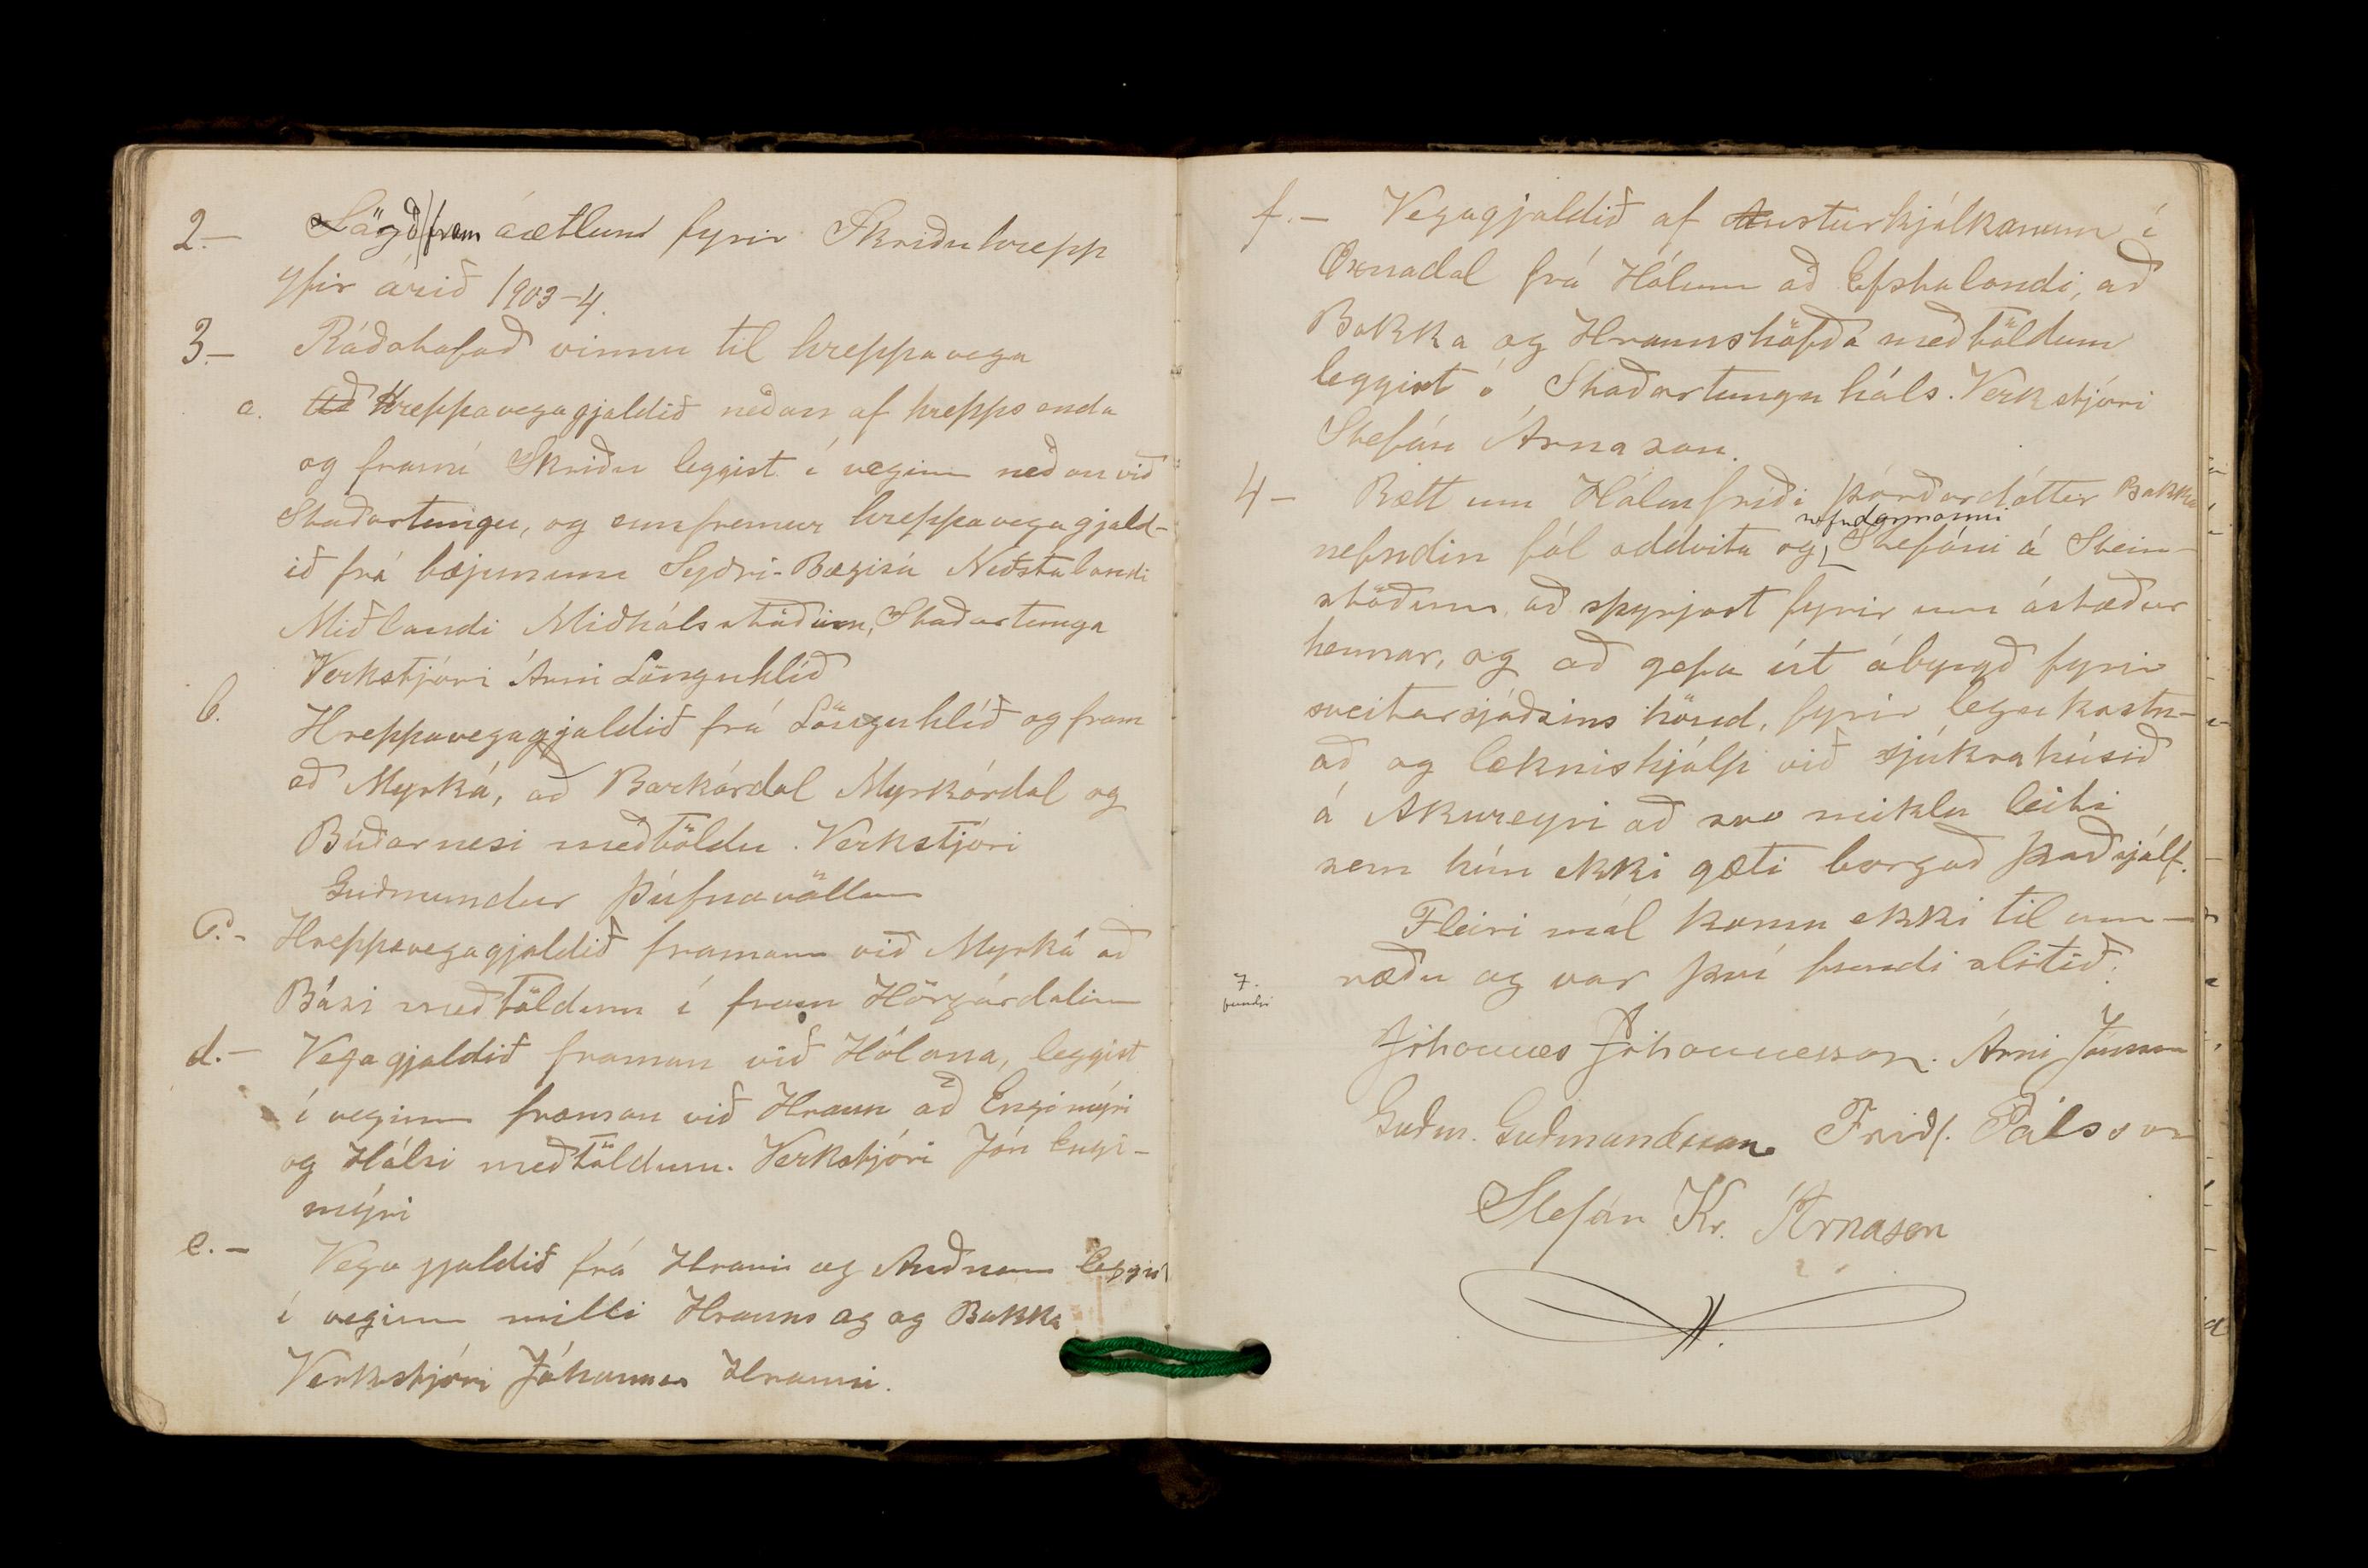 2.- Lögð fram áætlun fyrir Skriðuhrepp
yfir árið 1903-4.
3.- Ráðstafað vinnu til hreppavega
a. Hreppavegagjaldið neðan af hrepps enda
og framí Skriðu leggist í veginn neðan við
Staðartungu, og ennfremur hreppavegagjald-
ið frá bæjunum Syðri-Bægisá Neðstalandi
Miðlandi Miðhálsstöðum, Staðartunga
Verkstjóri Árni Lönguhlíð
b. Hreppavegagjaldið frá Lönguhlíð og fram
að Myrká, að Barkárdal Myrkárdal og
Búðarnesi meðtöldu. Verkstjóri
Guðmundur Þúfnavöllum
c.- Hreppavegagjaldið framan við Myrká að
Bási meðtöldum í fram Hörgárdalinn
d.- Vegagjaldið framan við Hólana, leggist
í veginn framan við Hraun að Engimýri
og Hálsi meðtöldum. Verkstjóri Jón Engi-
mýri
e.- Vegagjaldið frá Hrauni og Auðnum leggist
í veginn milli Hrauns og og Bakka
Verkstjóri Jóhannes Hrauni.
f.- Vegagjaldið af Austurkjálkanum í
Öxnadal frá Hólum að Efstalandi, að
Bakka og Hraunshöfða meðtöldum
leggist á Staðartunguháls. Verkstjóri
Stefán Árnason.
4- Rætt um Hólmfríði Þórðardóttir Bakka
nefndarmanni
nefndin fól oddvita og Stefáni á Stein-
stöðum að spyrjast fyrir um ástæður
hennar, og að gefa út ábyrgð fyrir
sveitarsjóðsins hönd, fyrir legukostn-
að og læknishjálp við sjúkrahúsið
á Akureyri að svo miklu leiti
sem hún ekki gæti borgað það sjálf.
Fleiri mál komu ekki til um-
ræðu og var því fundi slitið.
7.
fundri
Jóhannes Jóhannesson. Árni Jónsson
Guðm. Guðmundsson Friðf. Pálsson
Stefán Kr. Árnason